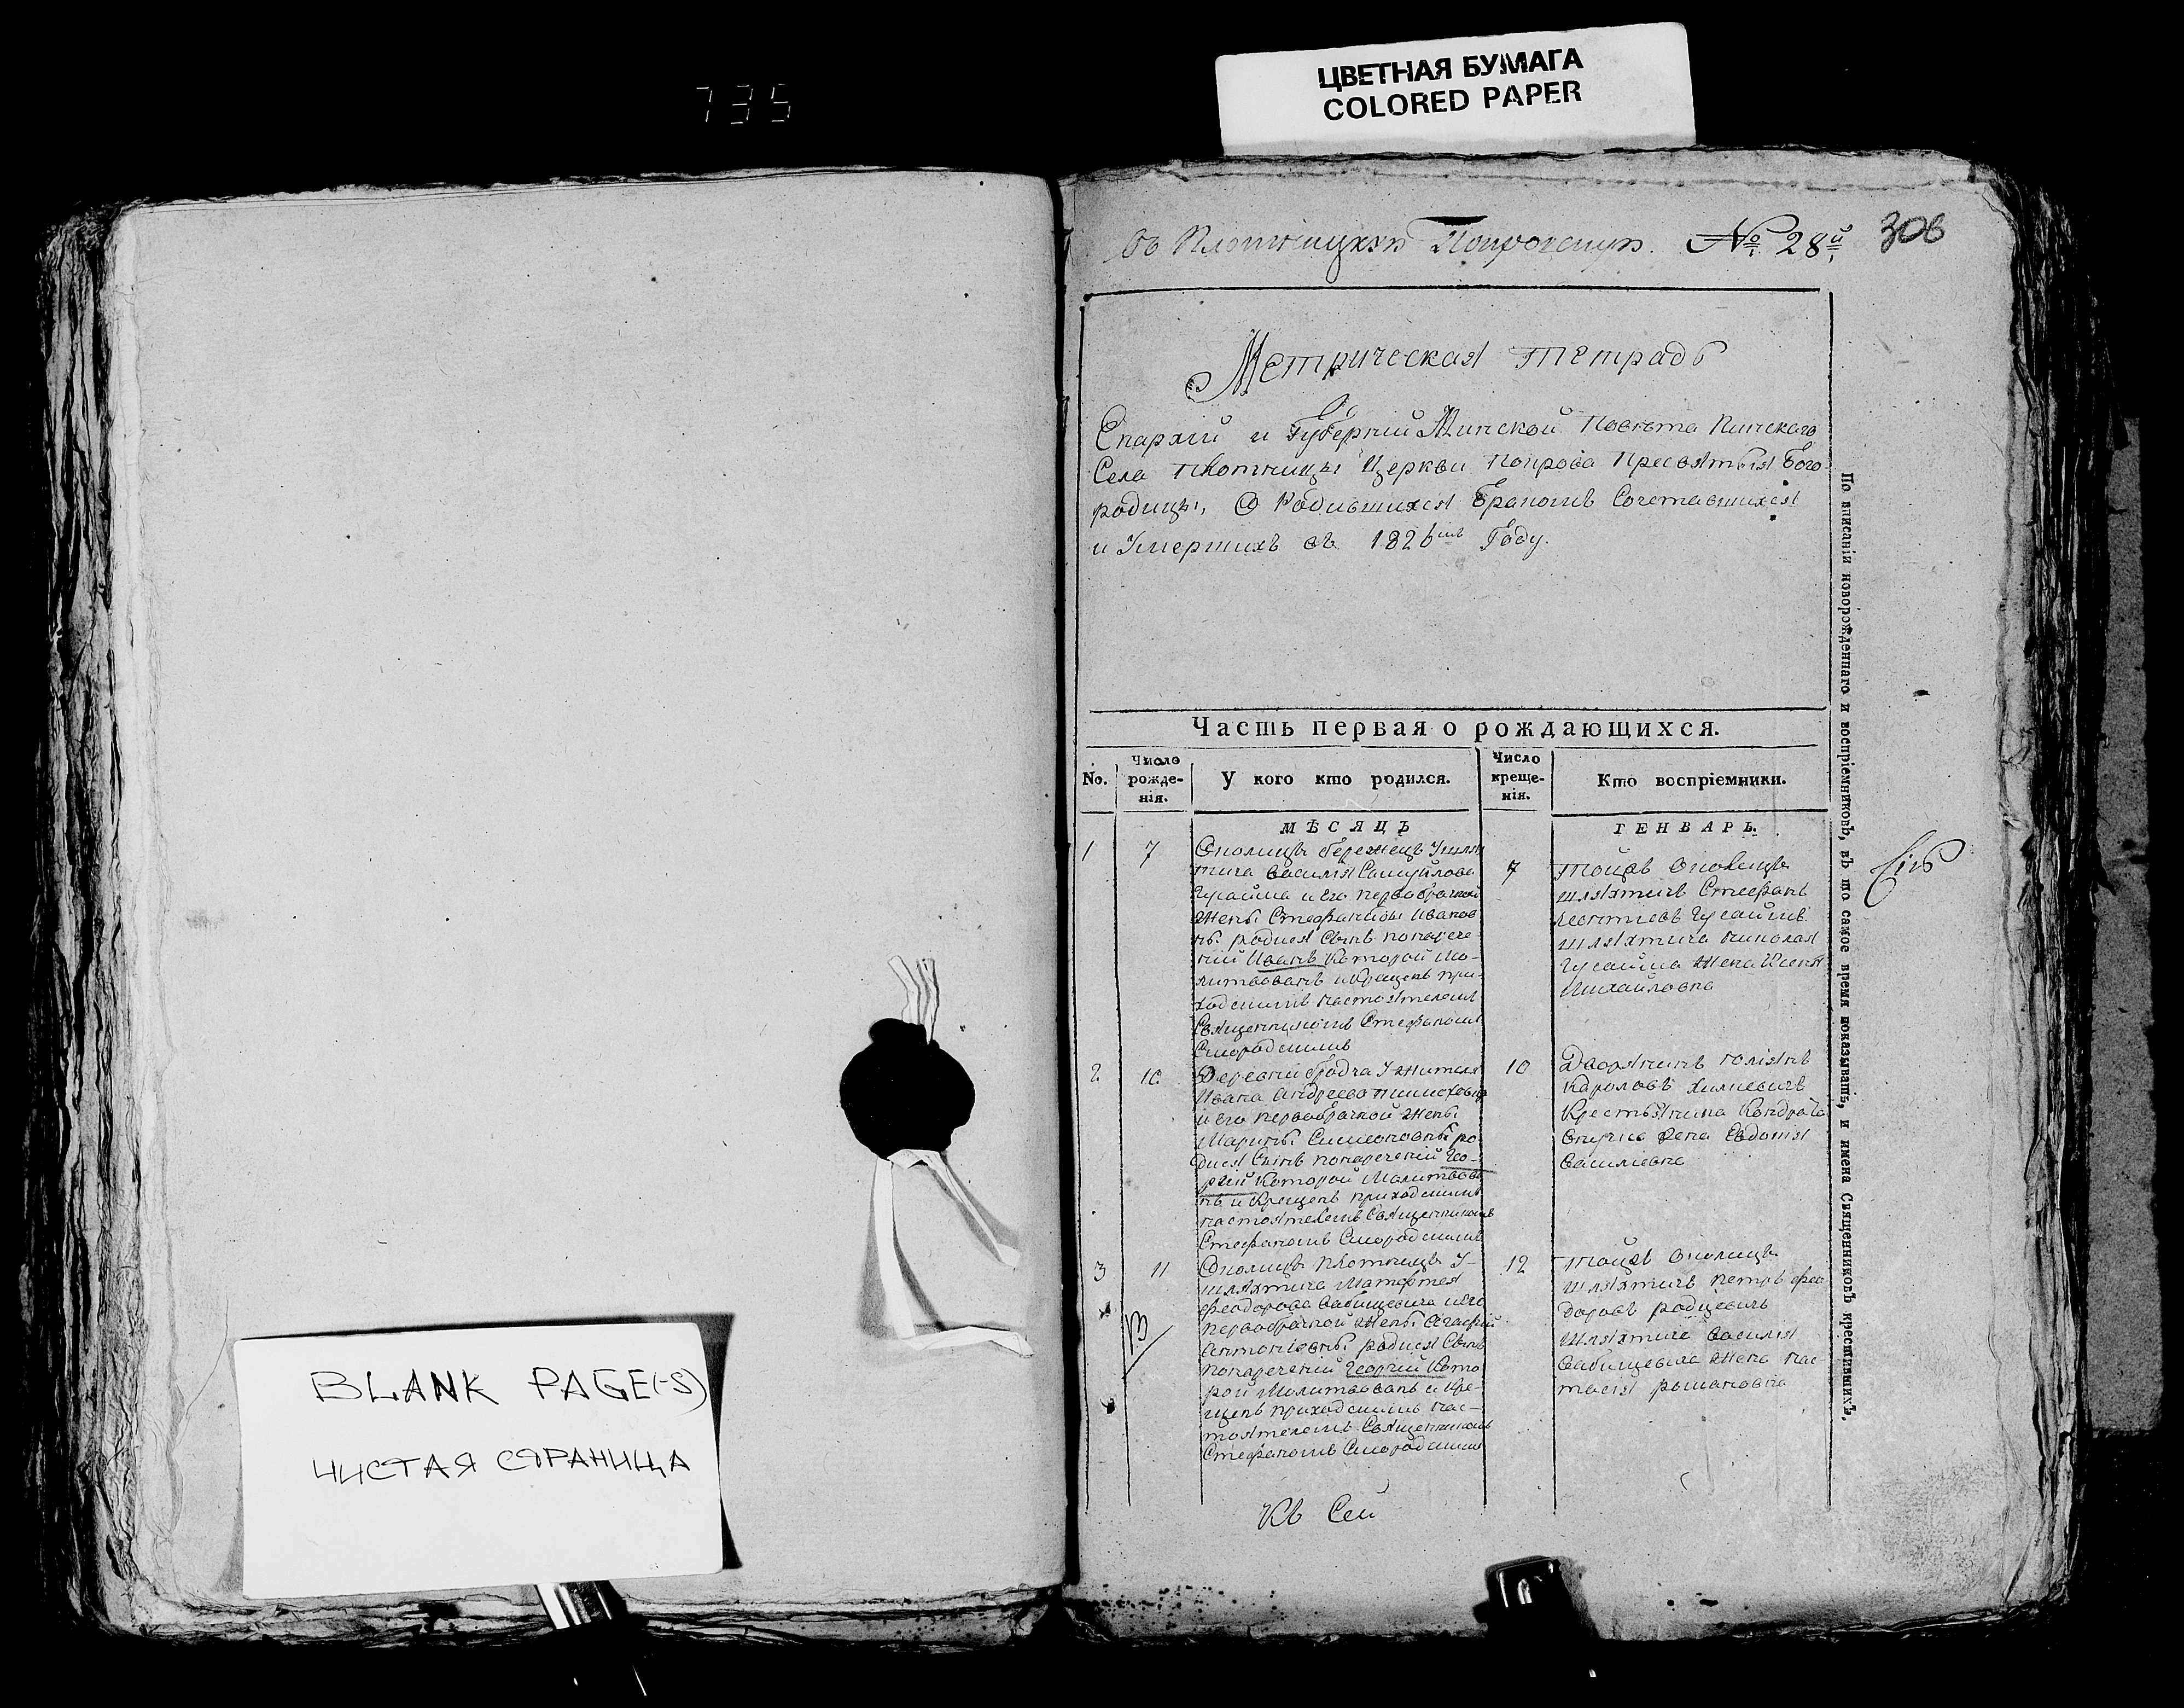 735
ЦВЕТНАЯ БУМАГА
COLORED PAPER
№ 28й
306
Метрическая тетрадь
Епархіи и Губерніи Минской Повѣта Пинскаго
Села Плотницы Церкви Покрова Пресвятыя Бого-
родицы, О Родившихся Бракомъ Сочетавшихся
и Умершихъ въ 1826мъ Году.
Часть первая о рождающихся.
No.
Число рожде-нія.
У кого кто родился.
Число креще-нія.
Кто воспріемники.
МѢСЯЦЪ
ГЕНВАРЬ.
1
7
Околицы Бережецъ У шлях
тича Василія Самуйлова
Гусайма и Его первобрачной
Жены Стефаниды Иванов
ны родися Сынъ понарече
ній Иванъ Которой Мо-
литвованъ и Крещенъ при-
ходскимъ настоятелемъ
Священникомъ Стефаномъ
Смородскимъ
7
Тойжъ Околицы
шляхтичъ Стефанъ
Леонтіевъ
шляхтича Николая
жена
Михайловна
2
10
Деревни Бродча У жителя
Ивана Андреева
и Его первобрачной Жены
Марины Симеоновны ро
дися Сынъ понареченій Гео-
ргій Которой Молитвова
нъ и Крещенъ приходскимъ
настоятелемъ Священникомъ
Стефаномъ Смородскимъ
10
Дворянинъ
Карловъ
Крестьянина Кондрата
Жена Евдокія
Василіевна
3
11
Околицы Плотницы У
шляхтича Матфея
Феодорова Бабицевича и Его
первобрачной Жены Агафіи
Антоніовны родися Сынъ
понареченій Георгій Кото
рой Молитвованъ и Кре-
щенъ приходскимъ нас-
тоятелемъ Священникомъ
Стефаномъ Смородскимъ
12
Тойжъ Околицы
шляхтичъ Петръ Фео
доровъ Родцевичъ
шляхтича Василія
Бабицевича Жена Нас-
тасія Романовна
По вписаніи новорожденнаго и воспріемниковъ, въ то самое время показывать, и имена Священниковъ крестившихъ.
Къ Сей
BLANK PAGE(-S)
ЧИСТАЯ СТРАНИЦА